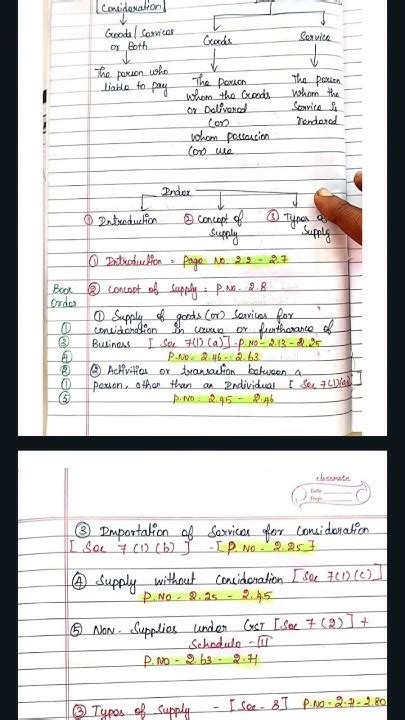 Consideration
Goods / Services
or Both
The person who
liable to pay
Goods
The person
whom the Goods
or Delivered
(or)
whom possession
(or) use
Service
The person
whom the
Service is
rendered
Index
① Introduction
② Concept of
Supply
③ Types of
Supply
① Introduction = Page No. 2.2 - 2.7
Book
Order
② Concept of Supply : P.No - 2.8
① Supply of goods (or) Services for
① consideration in course or furtherance of
③ Business [ Sec 7(1)(a)] - P.No - 2.13 - 2.25
④ P.No - 2.46 - 2.63
② ② Activities or transaction between a
① person, other than an Individual [ Sec 7(1)(aa)]
⑤ P.No - 2.45 - 2.46
classmate
Date
Page
③ Importation of Services for Consideration
[ Sec 7(1)(b) ] - [ P.No - 2.25 ]
④ Supply without Consideration [ Sec 7(1)(c)]
P.No - 2.25 - 2.45
⑤ Non-Supplies under GST [Sec 7(2)] +
Schedule - III
P.No - 2.63 - 2.71
③ Types of Supply - [Sec - 8] P.No - 2.7 - 2.80